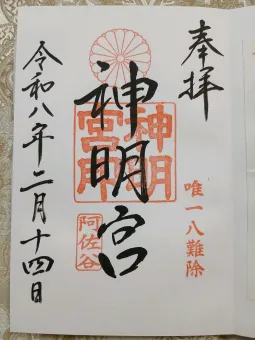 奉拝
唯一八難除
神明宮
神明宮印
阿佐谷
令和八年二月十四日